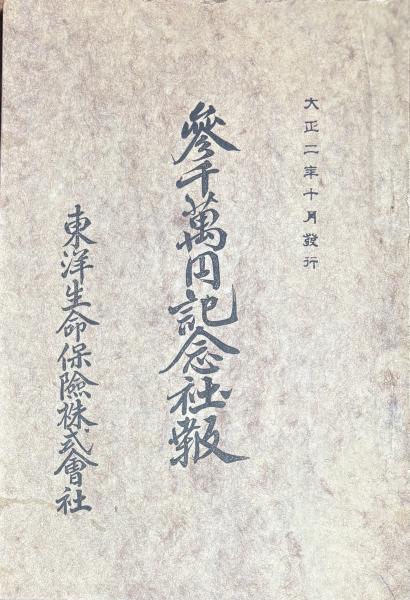 大正二年十月發行
參千萬円記念社報
東洋生命保險株式會社